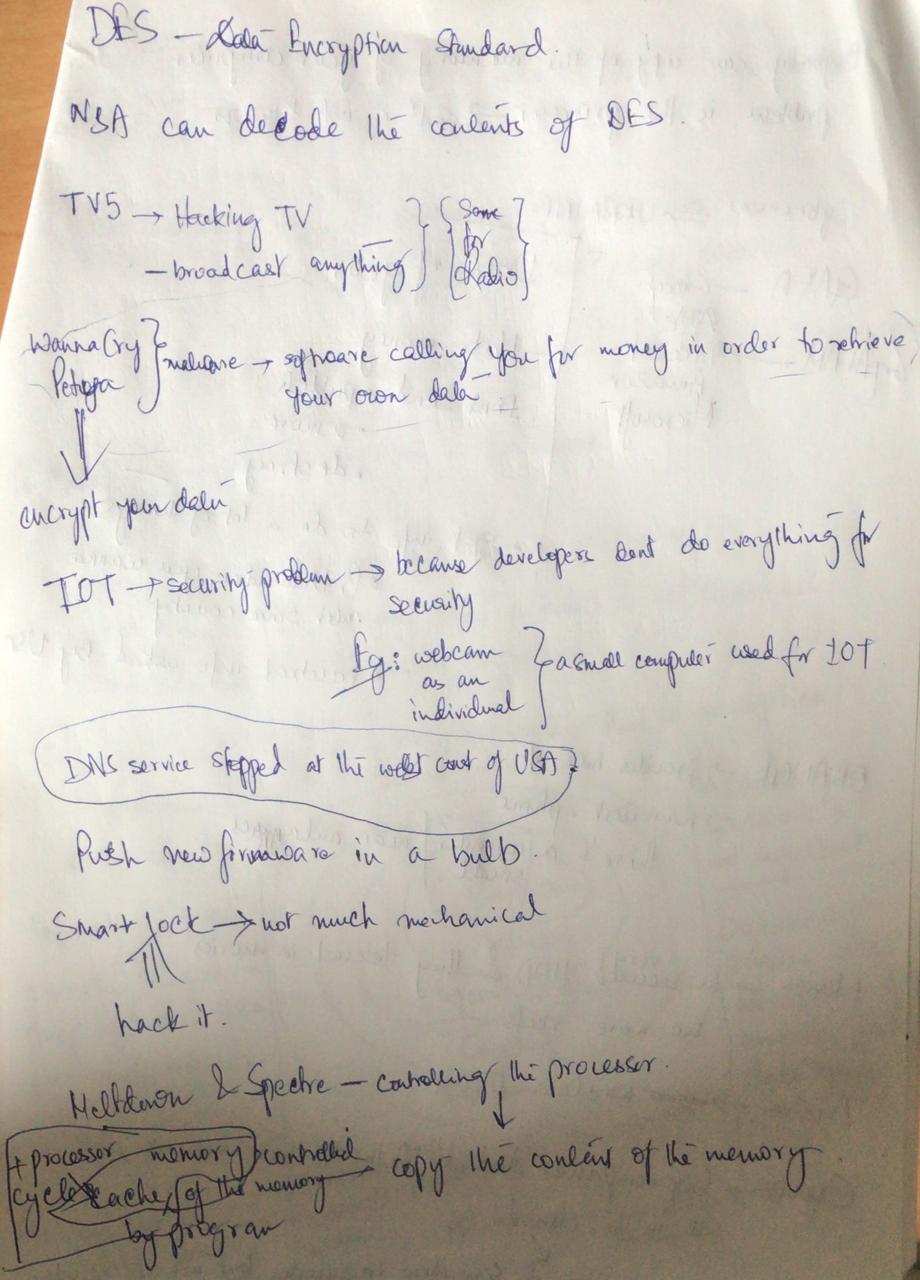 DES — Data Encryption Standard.
NSA can decode the contents of DES.
TV5 → Hacking TV
— broadcast anything
Same
for
Radio
WannaCry
Petya
malware → software calling you for money in order to retrieve
your own data
encrypt your data
IOT → security problem → because developers dont do everything for
security
Eg: webcam
as an
individual
a small computer used for IOT
DNS service stopped at the west coast of USA.
Push new firmware in a bulb.
Smart lock → not much mechanical
hack it.
Meltdown & Spectre — controlling the processor.
copy the content of the memory
+ processor memory controlled
cycles cache of the memory
by program